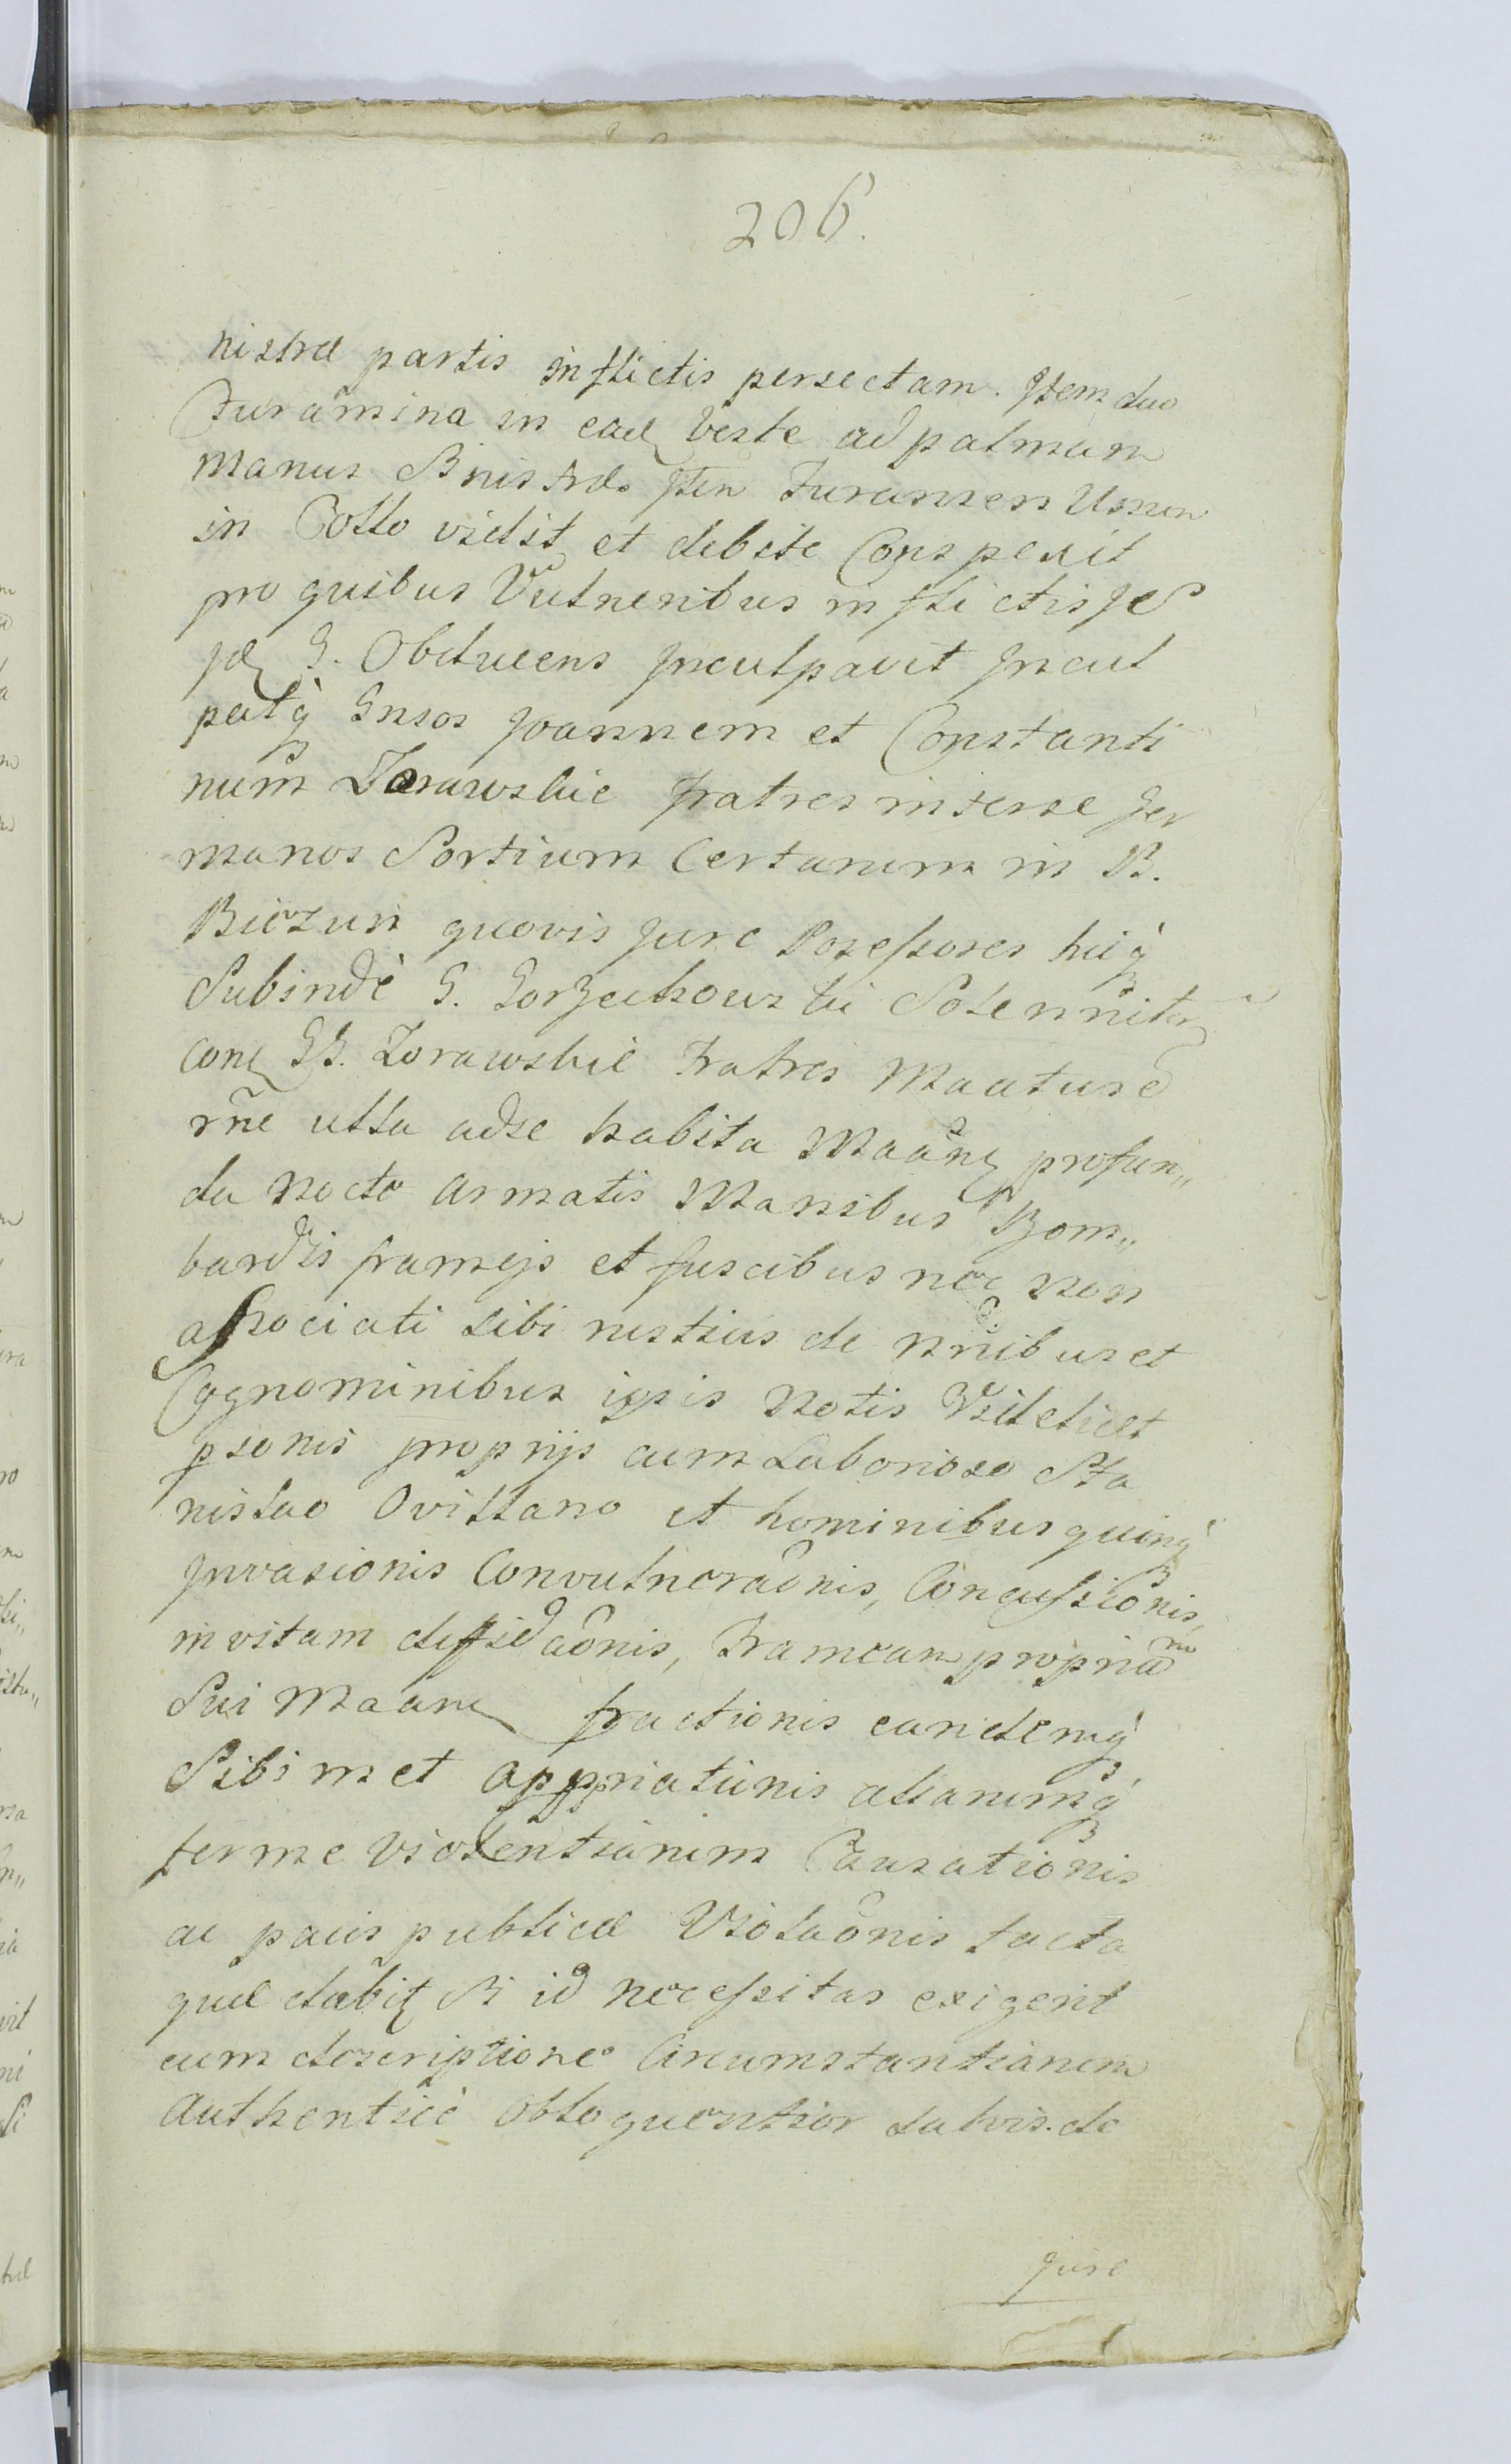 206.
nistræ partis inflictis persectam. Item duo
Furamina in eadꝫ veste ad palmam
manus Sinistræ. Item Furamen Unum
in Collo vidit et debite Conspexit
pro quibus Vulneribus inflictis
Idꝫ G. Obducens Inculpavit Incul
patq̀ Gnsos Joannem et Constanti
num Zorawskie fratres interse Ger
manos Sortium Certarum in B.
Biezun quovis Jure Possessores huiq̀
Subindè G. Gorzechowski Solenniter
conꝫ GG. Zorawskie Fratres
rñe ulla adse habita profun„
da nocte armatis Manibus Bom„
bardis frameis et fuscibus nec non
associati sibi rusticis de nñibus et
Cognominibus ipsis notis Videlicet
psonis proprijs cum Laborioso Sta
nislao Owczano et hominibus quinq̀
Invasionis Convulneraõnis, Concussionis,
in vitam diffidaõnis, Frameam propriam
Sui fractionis eandemq̀
Sibimet appriationis aliarumq̀
ferme violentiarum Causationis
ac pacis publicæ Violaõnis facta
quæ dabitꝫ Si id necessitas exigerit
cum descriptione Circumstantiarum
Authenticè obloquentior salvis. de
Jure